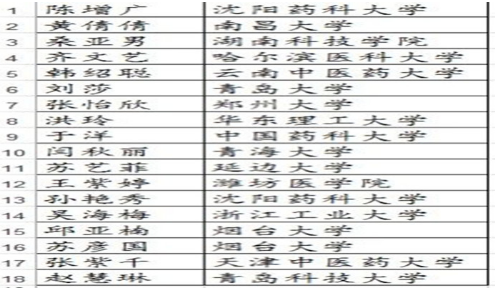 1 陈增广 沈阳药科大学
2 黄倩倩 南昌大学
3 桑亚男 湖南科技学院
4 齐文艺 哈尔滨医科大学
5 韩绍聪 云南中医药大学
6 刘莎 青岛大学
7 张怡欣 郑州大学
8 洪玲 华东理工大学
9 于洋 中国药科大学
10 闵秋丽 青海大学
11 苏艺菲 延边大学
12 王紫婷 潍坊医学院
13 孙艳秀 沈阳药科大学
14 吴海梅 浙江工业大学
15 邱亚楠 烟台大学
16 苏彦国 烟台大学
17 张紫千 天津中医药大学
18 赵慧琳 青岛科技大学